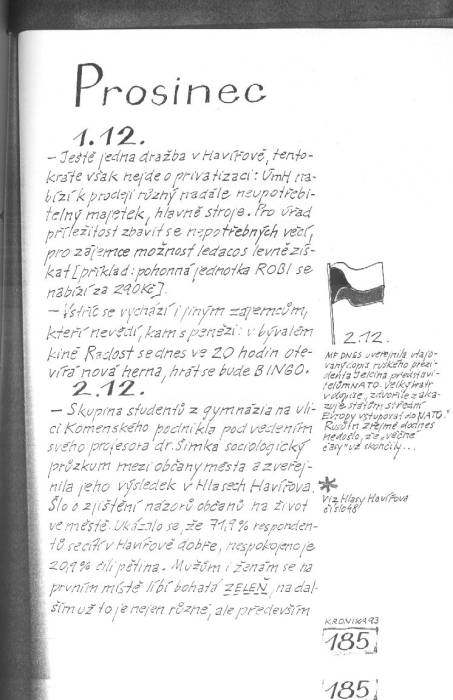 Prosinec
1.12.
– Ještě jedna dražba v Havířově, tento-
kráte však nejde o privatizaci: ÚmH na-
bízí k prodeji různý nadále neupotřebi-
telný majetek, hlavně stroje. Pro úřad
příležitost zbavit se nepotřebných věcí,
pro zájemce možnost ledacos levně zís-
kat [příklad: pohonná jednotka ROBI se
nabízí za 290Kč].
– Vstříc se vychází i jiným zájemcům,
kteří nevědí, kam s penězi: v bývalém
kině Radost se dnes ve 20 hodin ote-
vírá nová herna, hrát se bude BINGO.
2.12.
– Skupina studentů z gymnázia na uli-
ci Komenského podnikla pod vedením
svého profesora dr. Šimka sociologický
průzkum mezi občany města a zveřej-
nila jeho výsledek v Hlasech Havířova.
Šlo o zjištění názorů občanů na život
ve městě. Ukázalo se, že 71,9% responden-
tů se cítí v Havířově dobře, nespokojeno je
20,9% čili pětina. Mužům i ženám se na
prvním místě líbí bohatá ZELEŇ, na dal-
ším už to je nejen různé, ale především
2.12.
MF DNES uveřejnila utajo-
vaný dopis ruského prezi-
denta Jelcina představi-
telům NATO. Velký bratr
v dopise
státům střední
Evropy vstupovat do NATO."
Rusům zřejmě dodnes
nedošlo, že „věčné
časy" už skončily...
*
Viz Hlasy Havířova
číslo 48
KRONIKA 93
185
185